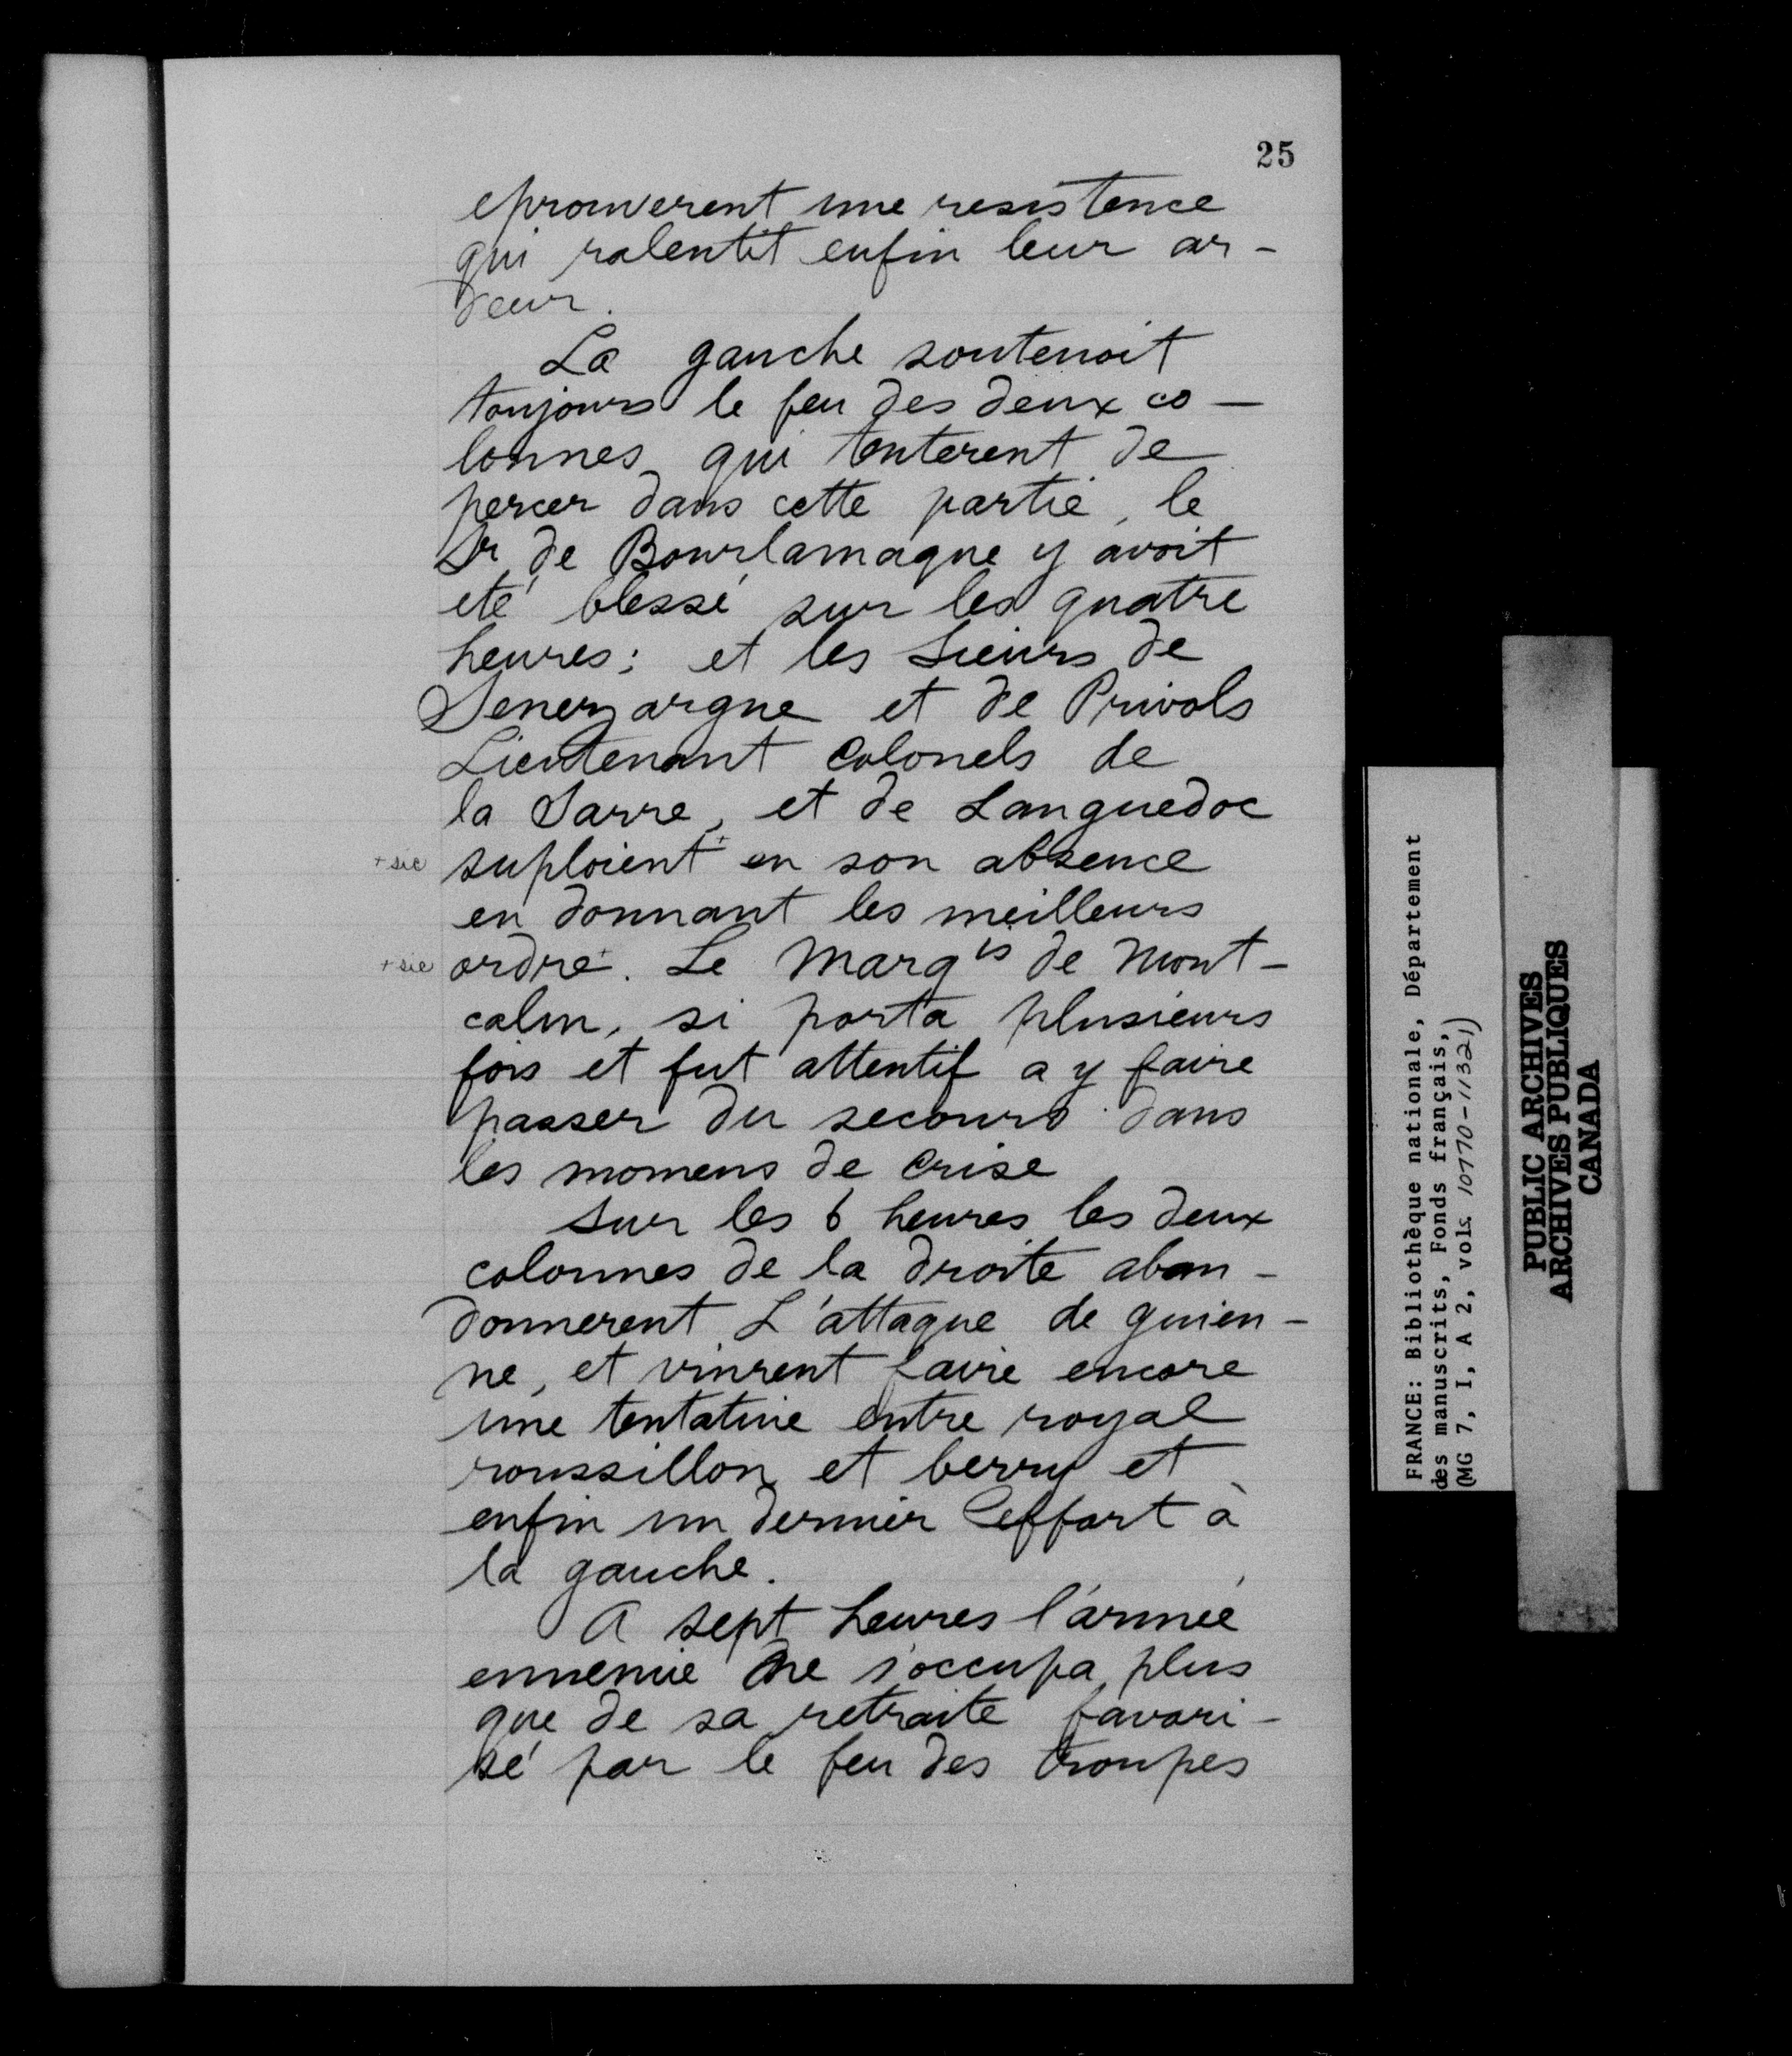 25
eprouverent une resistence
qui ralentit enfin leur ar-
deur.
La gauche soutenoit
toujours le feu des deux co-
lonnes qui tenterent de
percer dans cette partie, le
Sr de Bourlamaque y avoit
eté blessé sur les quatre
heures; et les Sieurs de
Senezargue et de Privals
Lieutenant Colonels de
la Sarre, et de Languedoc
+ sic suploient + en son absence
en donnant les meilleurs
+ sic ordre +. Le Marqis de Mont-
calm, si porta plusieurs
fois et fut attentif a y faire
passer du secours dans
les momens de Crise
Sur les 6 heures les deux
colonnes de la droite aban-
donnerent L'attaque de guien-
ne, et vinrent faire encore
une tentative entre royal
roussillon et berry et
enfin un dernier Effort à
la gauche.
A sept heures l'armée
ennemie ne s'occupa plus
que de sa retraite favori-
sé par le feu des troupes
FRANCE: Bibliothèque nationale, Département
des manuscrits, Fonds français,
(MG 7, I, A 2, vols. 10770-11321)
PUBLIC ARCHIVES
ARCHIVES PUBLIQUES
CANADA